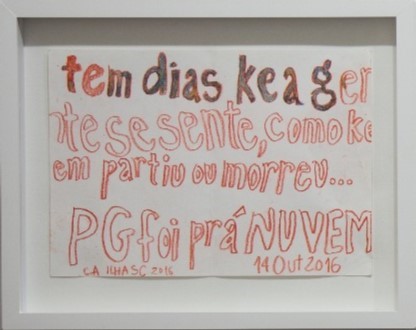 tem dias ke a ger
nte se sente, como ke
em partiu ou morreu...
PG foi prá NUVEM
CA ILHA SC 2016 14 Out 2016